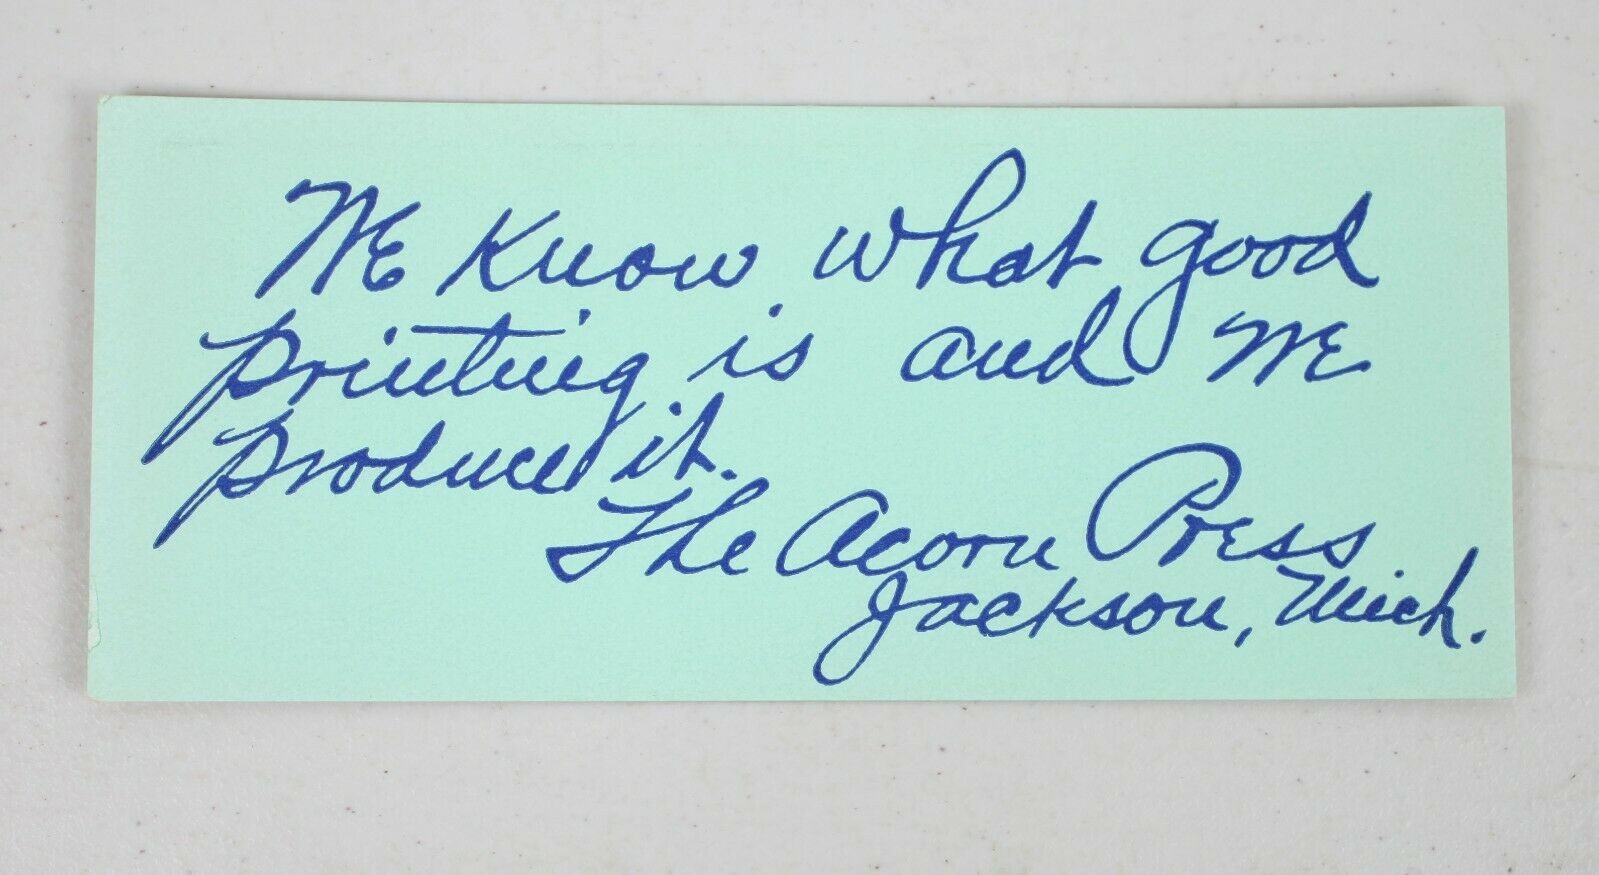 We know what good
printing is and we
produce it.
The Acorn Press
Jackson, Mich.